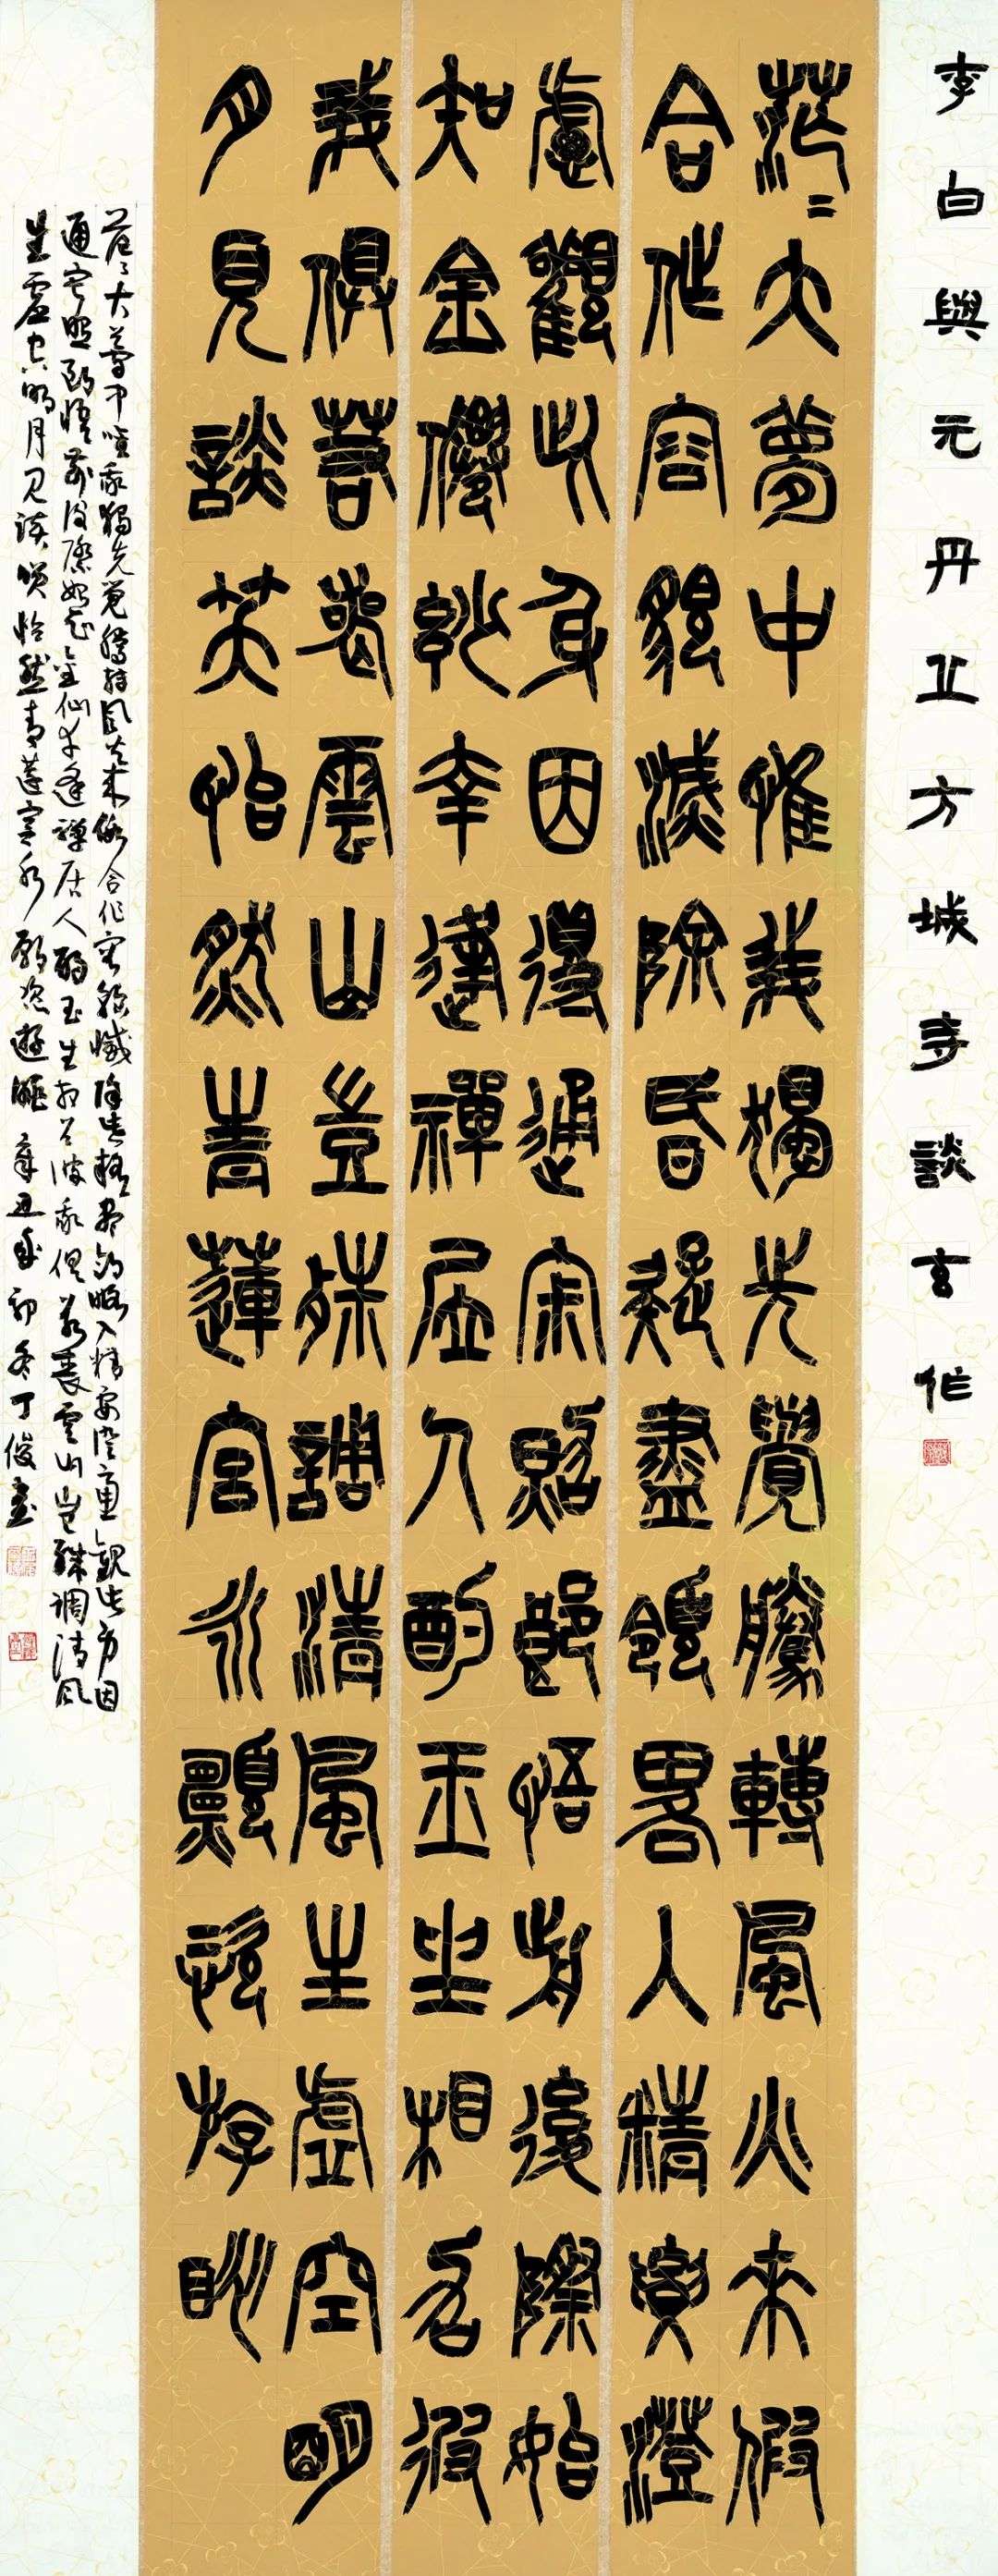 李白與元丹丘方城寺談玄作
茫二大夢中惟我獨先覺騰轉風火來假
合作容貌滅除昏疑盡領畧入精要澄
慮觀此身因得通寂照郎悟前後際始
知金僊妙幸逢禪居人酌玉坐相召彼
我俱若喪雲山豈殊調清風生虛空明
月見談笑怡然青蓮宮永願恣游眺
茫々大夢中唯我獨先覺騰轉風火來假合作容貌滅除昏疑盡領略入精要澄慮觀此身因
通寂照朗悟前後際始知金仙妙幸逢禪居人酌玉坐相召彼我俱若喪雲山豈殊调清風
生虛空明月見談笑怡然青蓮宮永願恣遊眺 辛丑年初冬丁俊書